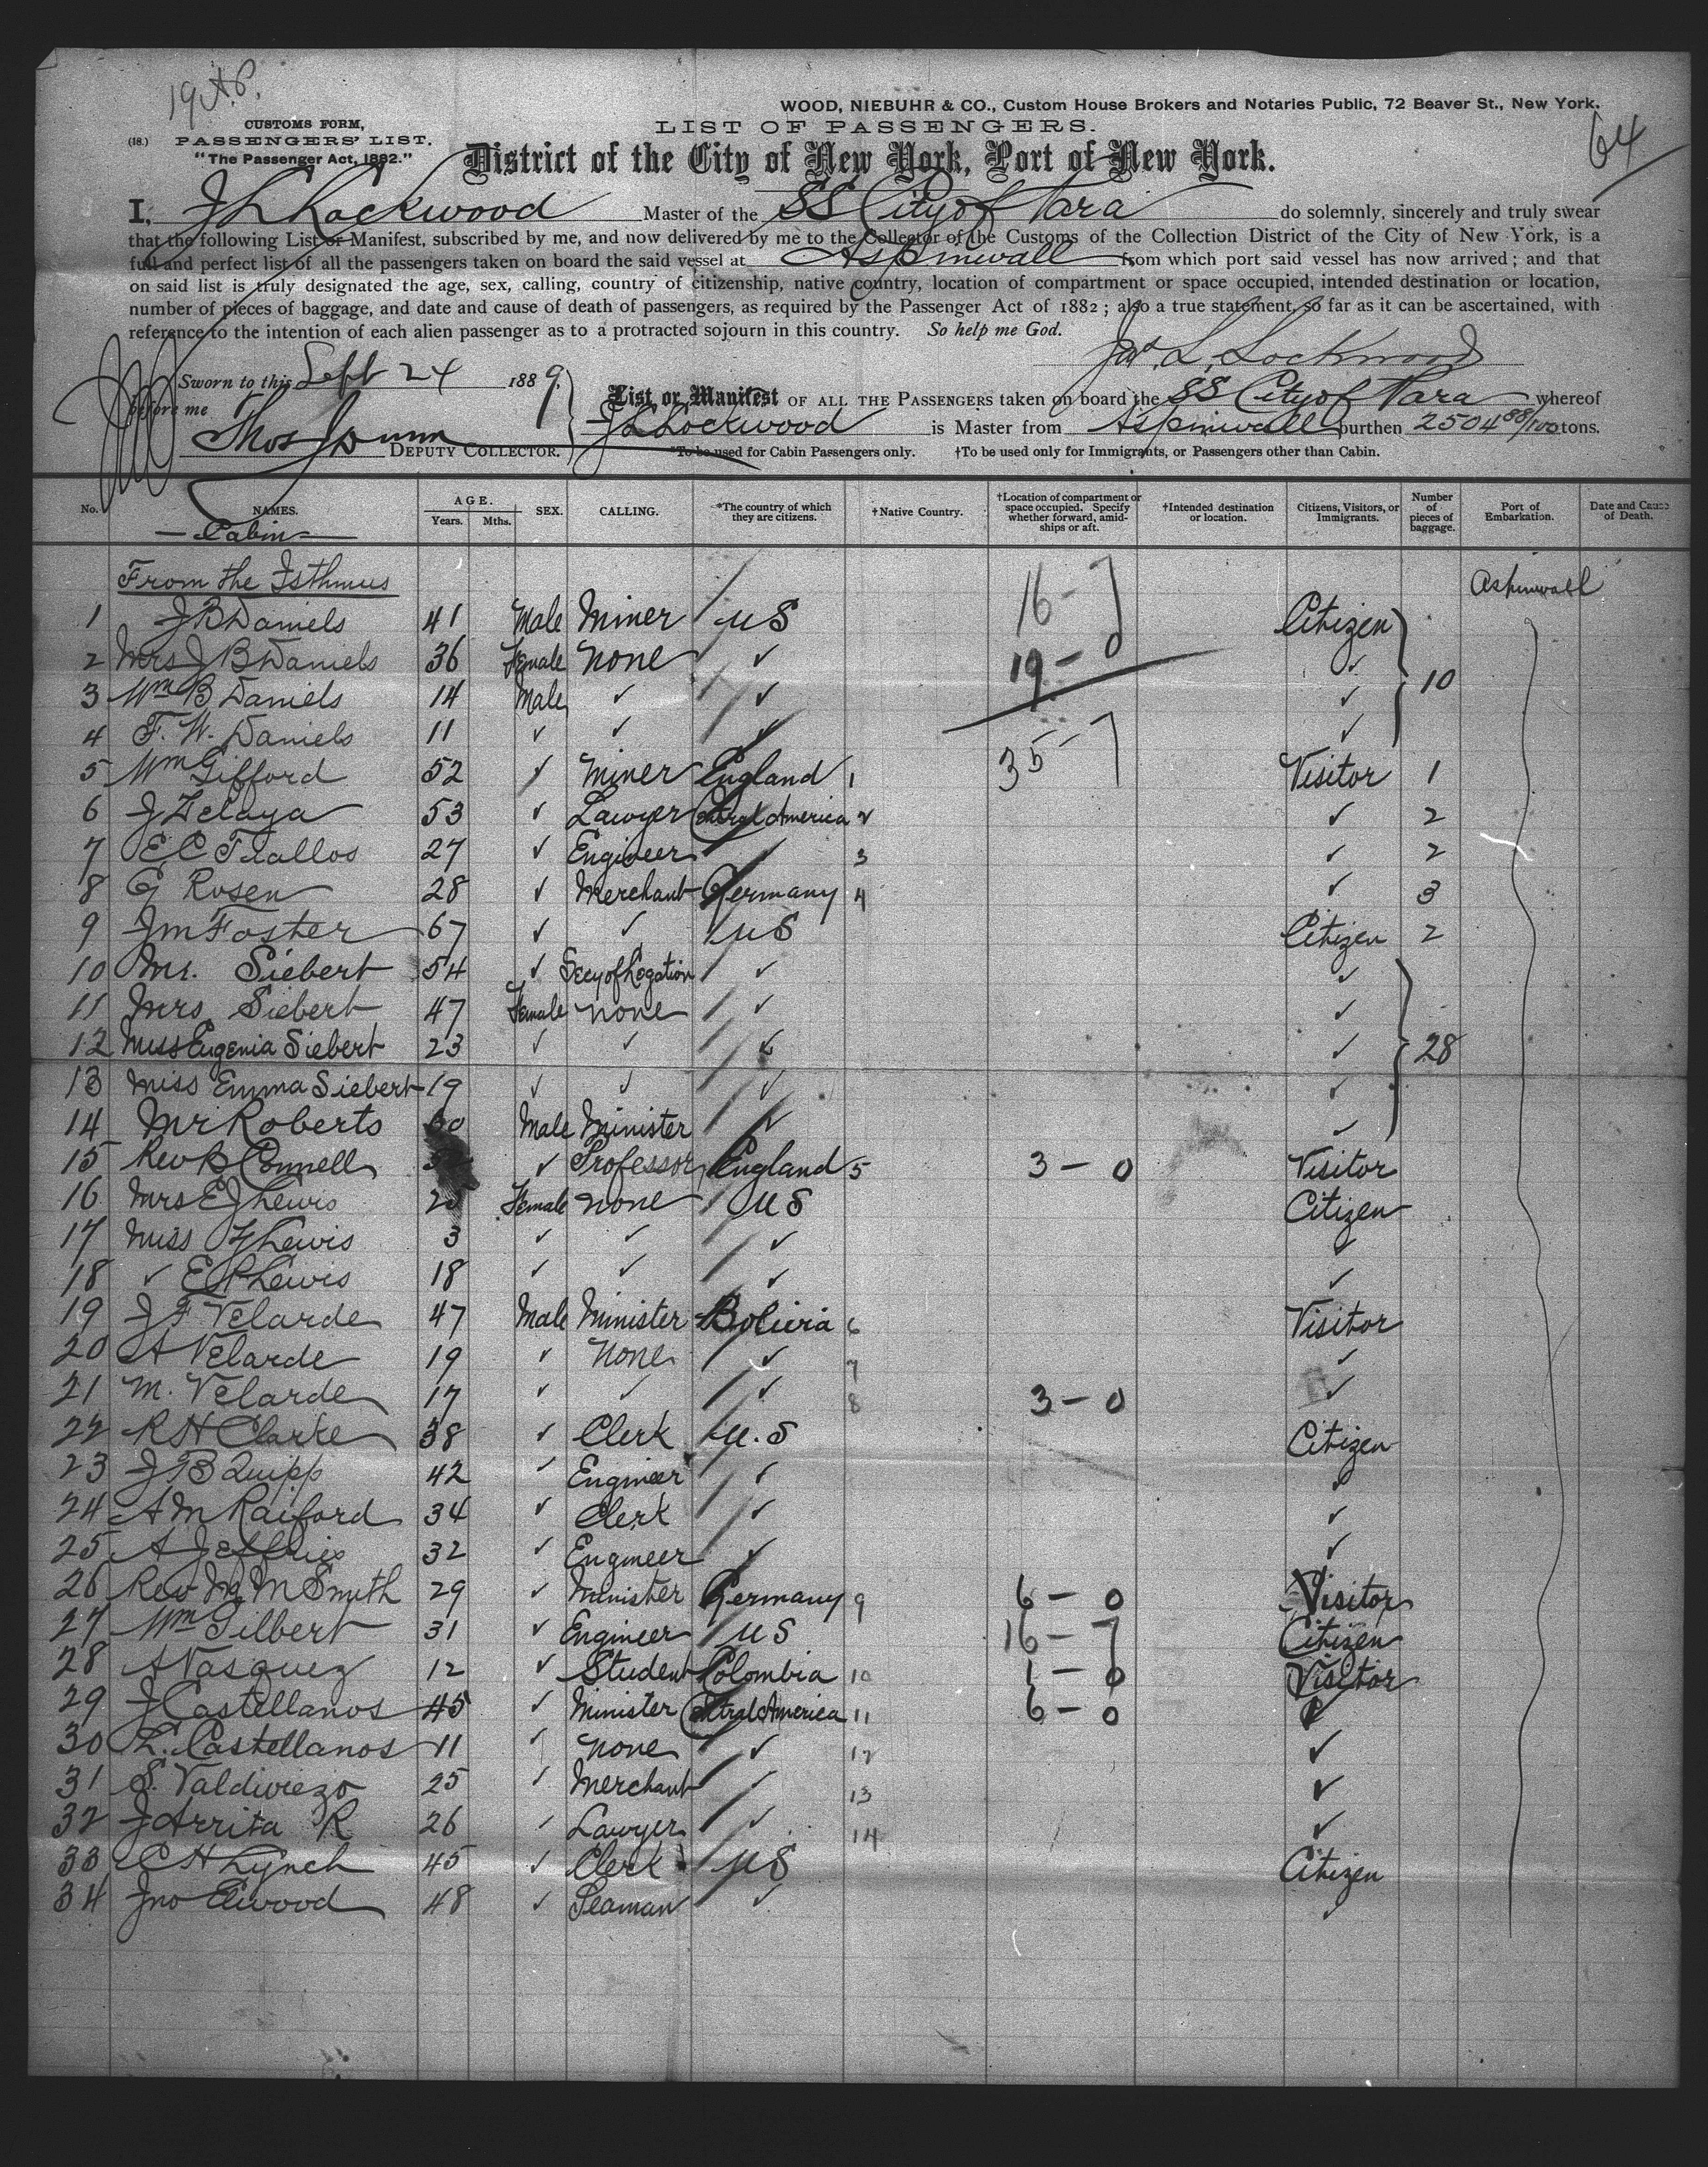 19 A.P.
WOOD, NIEBUHR & CO., Custom House Brokers and Notaries Public, 72 Beaver St., New York.
(18.) CUSTOMS FORM,
PASSENGERS' LIST.
"The Passenger Act, 1882."
LIST OF PASSENGERS.
64
District of the City of New York, Port of New York.
I, J L Lockwood Master of the SS City of Para do solemnly, sincerely and truly swear
that the following List or Manifest, subscribed by me, and now delivered by me to the Collector of the Customs of the Collection District of the City of New York, is a
full and perfect list of all the passengers taken on board the said vessel at Aspinwall from which port said vessel has now arrived; and that
on said list is truly designated the age, sex, calling, country of citizenship, native country, location of compartment or space occupied, intended destination or location,
number of pieces of baggage, and date and cause of death of passengers, as required by the Passenger Act of 1882; also a true statement, so far as it can be ascertained, with
reference to the intention of each alien passenger as to a protracted sojourn in this country. So help me God.
Jas. L. Lockwood
Sworn to this Sept 24 1889.
before me
Thos Dunn DEPUTY COLLECTOR.
List or Manifest OF ALL THE PASSENGERS taken on board the SS City of Para whereof
J L Lockwood is Master from Aspinwall burthen 2504 88/100 tons.
*To be used for Cabin Passengers only. †To be used only for Immigrants, or Passengers other than Cabin.
No. NAMES. AGE. Years. Mths. SEX. CALLING. *The country of which they are citizens. †Native Country. †Location of compartment or space occupied. Specify whether forward, amidships or aft. †Intended destination or location. Citizens, Visitors, or Immigrants. Number of pieces of baggage. Port of Embarkation. Date and Cause of Death.
Cabin
From the Isthmus 16 - 7 Aspinwall
1 J B Daniels 41 Male Miner US Citizen
2 Mrs J B Daniels 36 Female None ✓ 19 - 0 ✓
3 Wm B Daniels 14 Male ✓ ✓ ✓ 10
4 F. W. Daniels 11 ✓ ✓ ✓ 35 - 7 ✓
5 Wm Gifford 52 ✓ Miner England 1 Visitor 1
6 J Zelaya 53 ✓ Lawyer Central America 2 ✓ 2
7 E C Fiallos 27 ✓ Engineer ✓ 3 ✓ 2
8 G Rosen 28 ✓ Merchant Germany 4 ✓ 3
9 J M Foster 67 ✓ ✓ US Citizen 2
10 Mr. Siebert 54 ✓ Secy of Legation ✓ ✓
11 Mrs Siebert 47 Female None ✓ ✓
12 Miss Eugenia Siebert 23 ✓ ✓ ✓ ✓ 28
13 Miss Emma Siebert 19 ✓ ✓ ✓ ✓
14 Mr Roberts 60 Male Minister ✓ ✓
15 Rev B Connell ✓ Professor England 5 3 - 0 Visitor
16 Mrs E J Lewis Female None US Citizen
17 Miss Lewis 3 ✓ ✓ ✓ ✓
18 ✓ E P Lewis 18 ✓ ✓ ✓ ✓
19 J F Velarde 47 Male Minister Bolivia 6 Visitor
20 A Velarde 19 ✓ None ✓ 7 ✓
21 M. Velarde 17 ✓ ✓ ✓ 8 3 - 0 ✓
22 R H Clarke 38 ✓ Clerk U.S Citizen
23 J B Quipp 42 ✓ Engineer ✓ ✓
24 A M Raiford 34 ✓ Clerk ✓ ✓
25 A Jeffries 32 ✓ Engineer ✓ ✓
26 Rev M M Smith 29 ✓ Minister Germany 9 6 - 0 Visitor
27 Wm Gilbert 31 ✓ Engineer US 16 - 7 Citizen
28 A Vasquez 12 ✓ Student Colombia 10 1 - 0 Visitor
29 J Castellanos 45 ✓ Minister Central America 11 6 - 0 ✓
30 L. Castellanos 11 ✓ None ✓ 12 ✓
31 S. Valdiviezo 25 ✓ Merchant ✓ 13 ✓
32 J Arrita R 26 ✓ Lawyer ✓ 14 ✓
33 C H Lynch 45 ✓ Clerk US Citizen
34 Jno Elwood 48 ✓ Seaman ✓ ✓